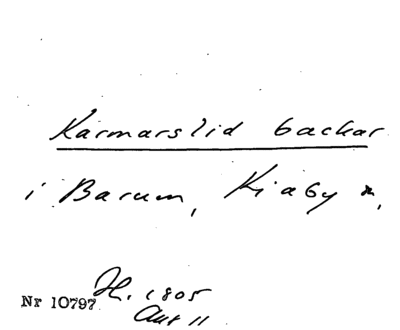 Karmarslid backar
i Barum, Kiaby
H. 1805
Nr 10797
Akt 11